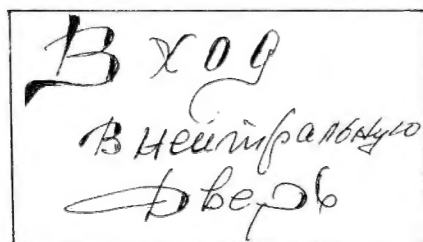 Вход
в нейтральную
дверь